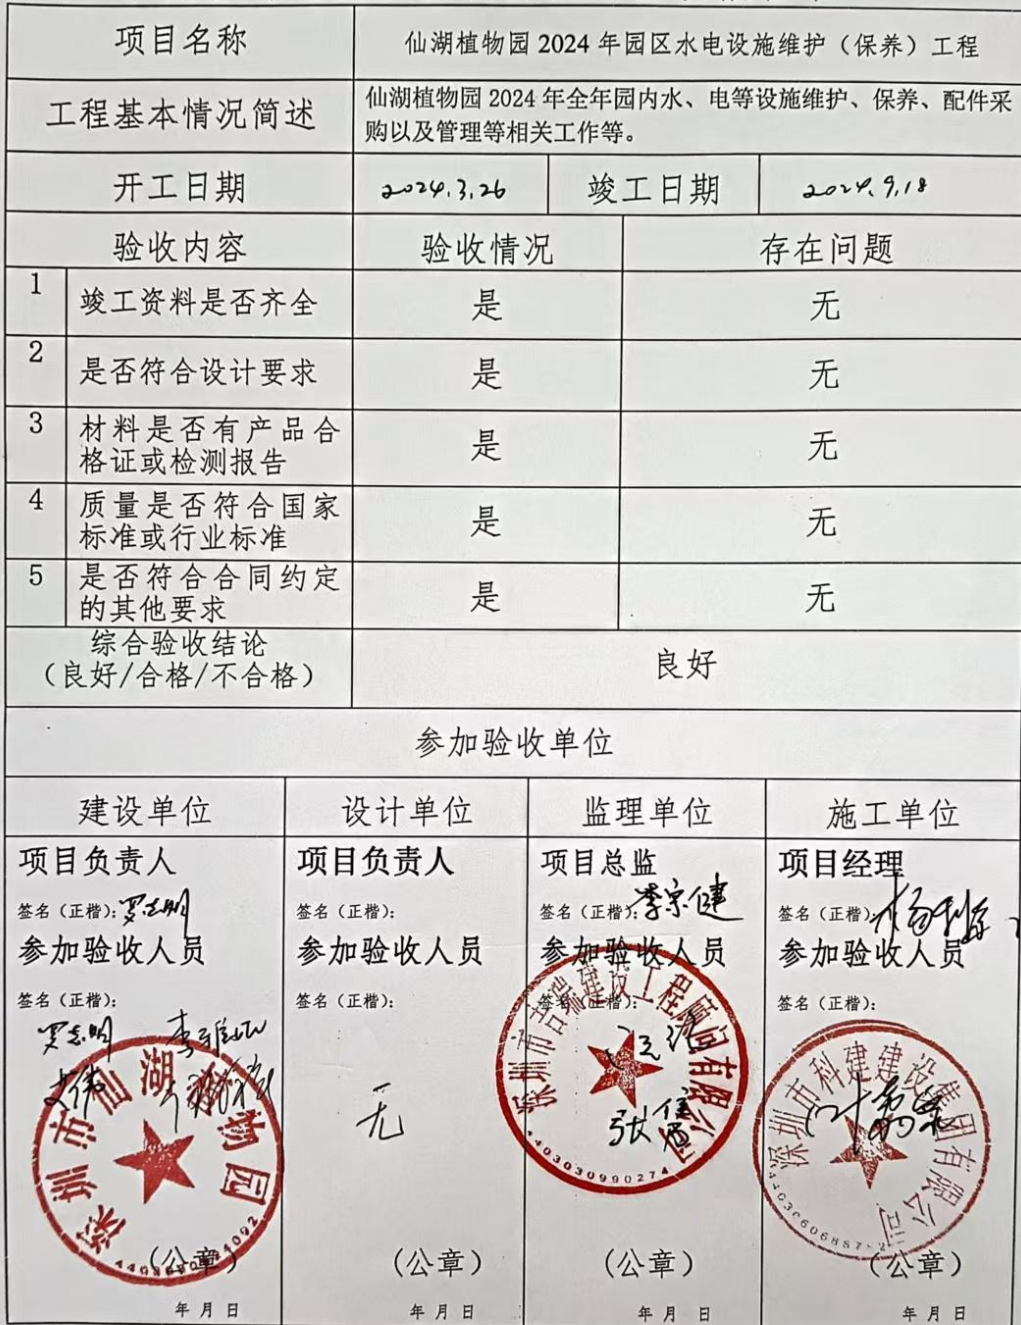 项目名称
仙湖植物园 2024 年园区水电设施维护（保养）工程
工程基本情况简述
仙湖植物园 2024 年全年园内水、电等设施维护、保养、配件采
购以及管理等相关工作等。
开工日期
2024.3.26
竣工日期
2024.9.18
验收内容
验收情况
存在问题
1
竣工资料是否齐全
是
无
2
是否符合设计要求
是
无
3
材料是否有产品合
格证或检测报告
是
无
4
质量是否符合国家
标准或行业标准
是
无
5
是否符合合同约定
的其他要求
是
无
综合验收结论
（良好/合格/不合格）
良好
参加验收单位
建设单位
设计单位
监理单位
施工单位
项目负责人
签名（正楷）：罗志明
参加验收人员
签名（正楷）：
罗志明
深圳市仙湖植物园
（公章）
年 月 日
项目负责人
签名（正楷）：
参加验收人员
签名（正楷）：
无
（公章）
年 月 日
项目总监
签名（正楷）：李宗健
参加验收人员
签名（正楷）：
深圳市吉瑞建设工程顾问有限公司
4403030990274
（公章）
年 月 日
项目经理
签名（正楷）：
参加验收人员
签名（正楷）：
深圳市科建建设集团有限公司
（公章）
年 月 日